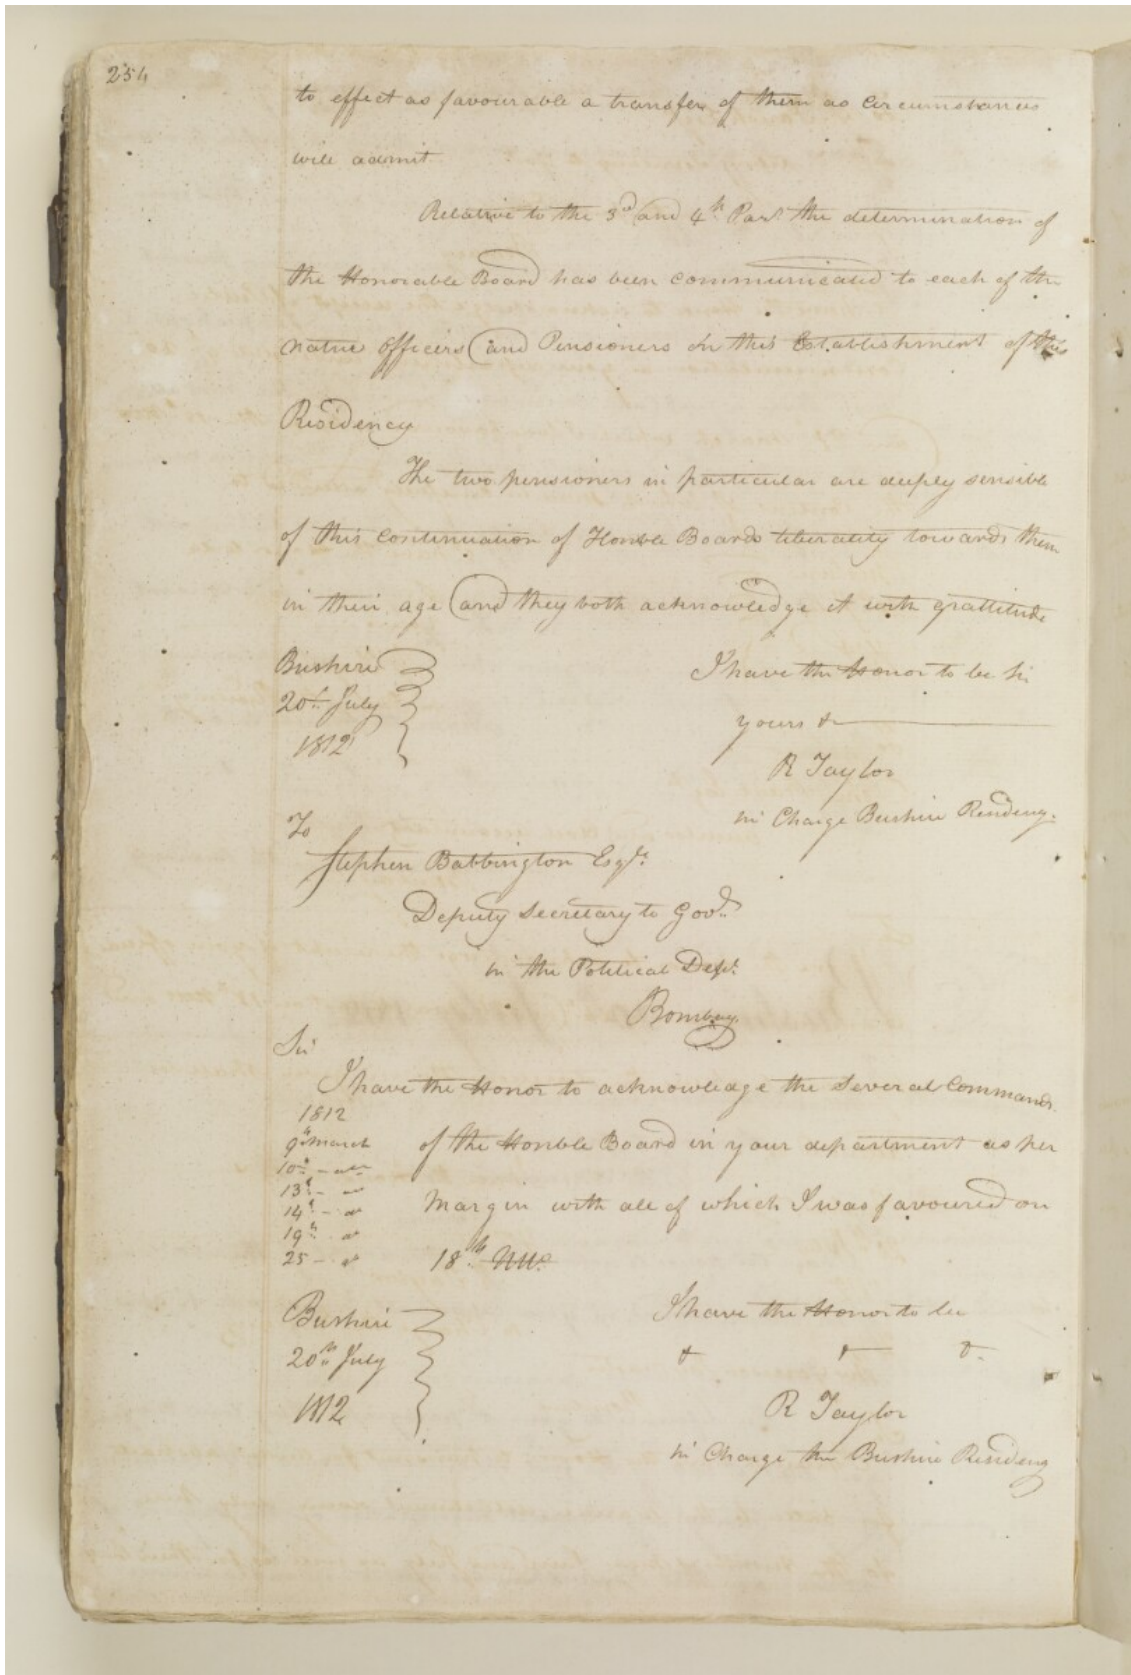 254
to effect as favourable a transfer of them as Circumstances
will admit
Relative to the 3rd and 4th Par. the determination of
the Honorable Board has been communicated to each of the
native officers and Pensioners on this Establishment of this
Residency
The two pensioners in particular are deeply sensible
of this Continuation of Honble Boards liberality towards them
in their age and they both acknowledge it with grattitude
Bushire
20th July
1812
I have the Honor to be Sir
yours &
R Taylor
in Charge Bushire Residency.
To
Stephen Babbington Esqr.
Deputy Secretary to Govt.
in the Political Dept.
Bombay.
Sir
I have the Honor to acknowledge the Several Commands
1812
9th March
10th - do
13th - do
14th - do
19th do
25 - do
of the Honble Board in your department as per
Margin with all of which I was favoured on
18th
Bushire
20th July
1812
I have the Honor to be
& & &.
R Taylor
in Charge the Bushire Residency